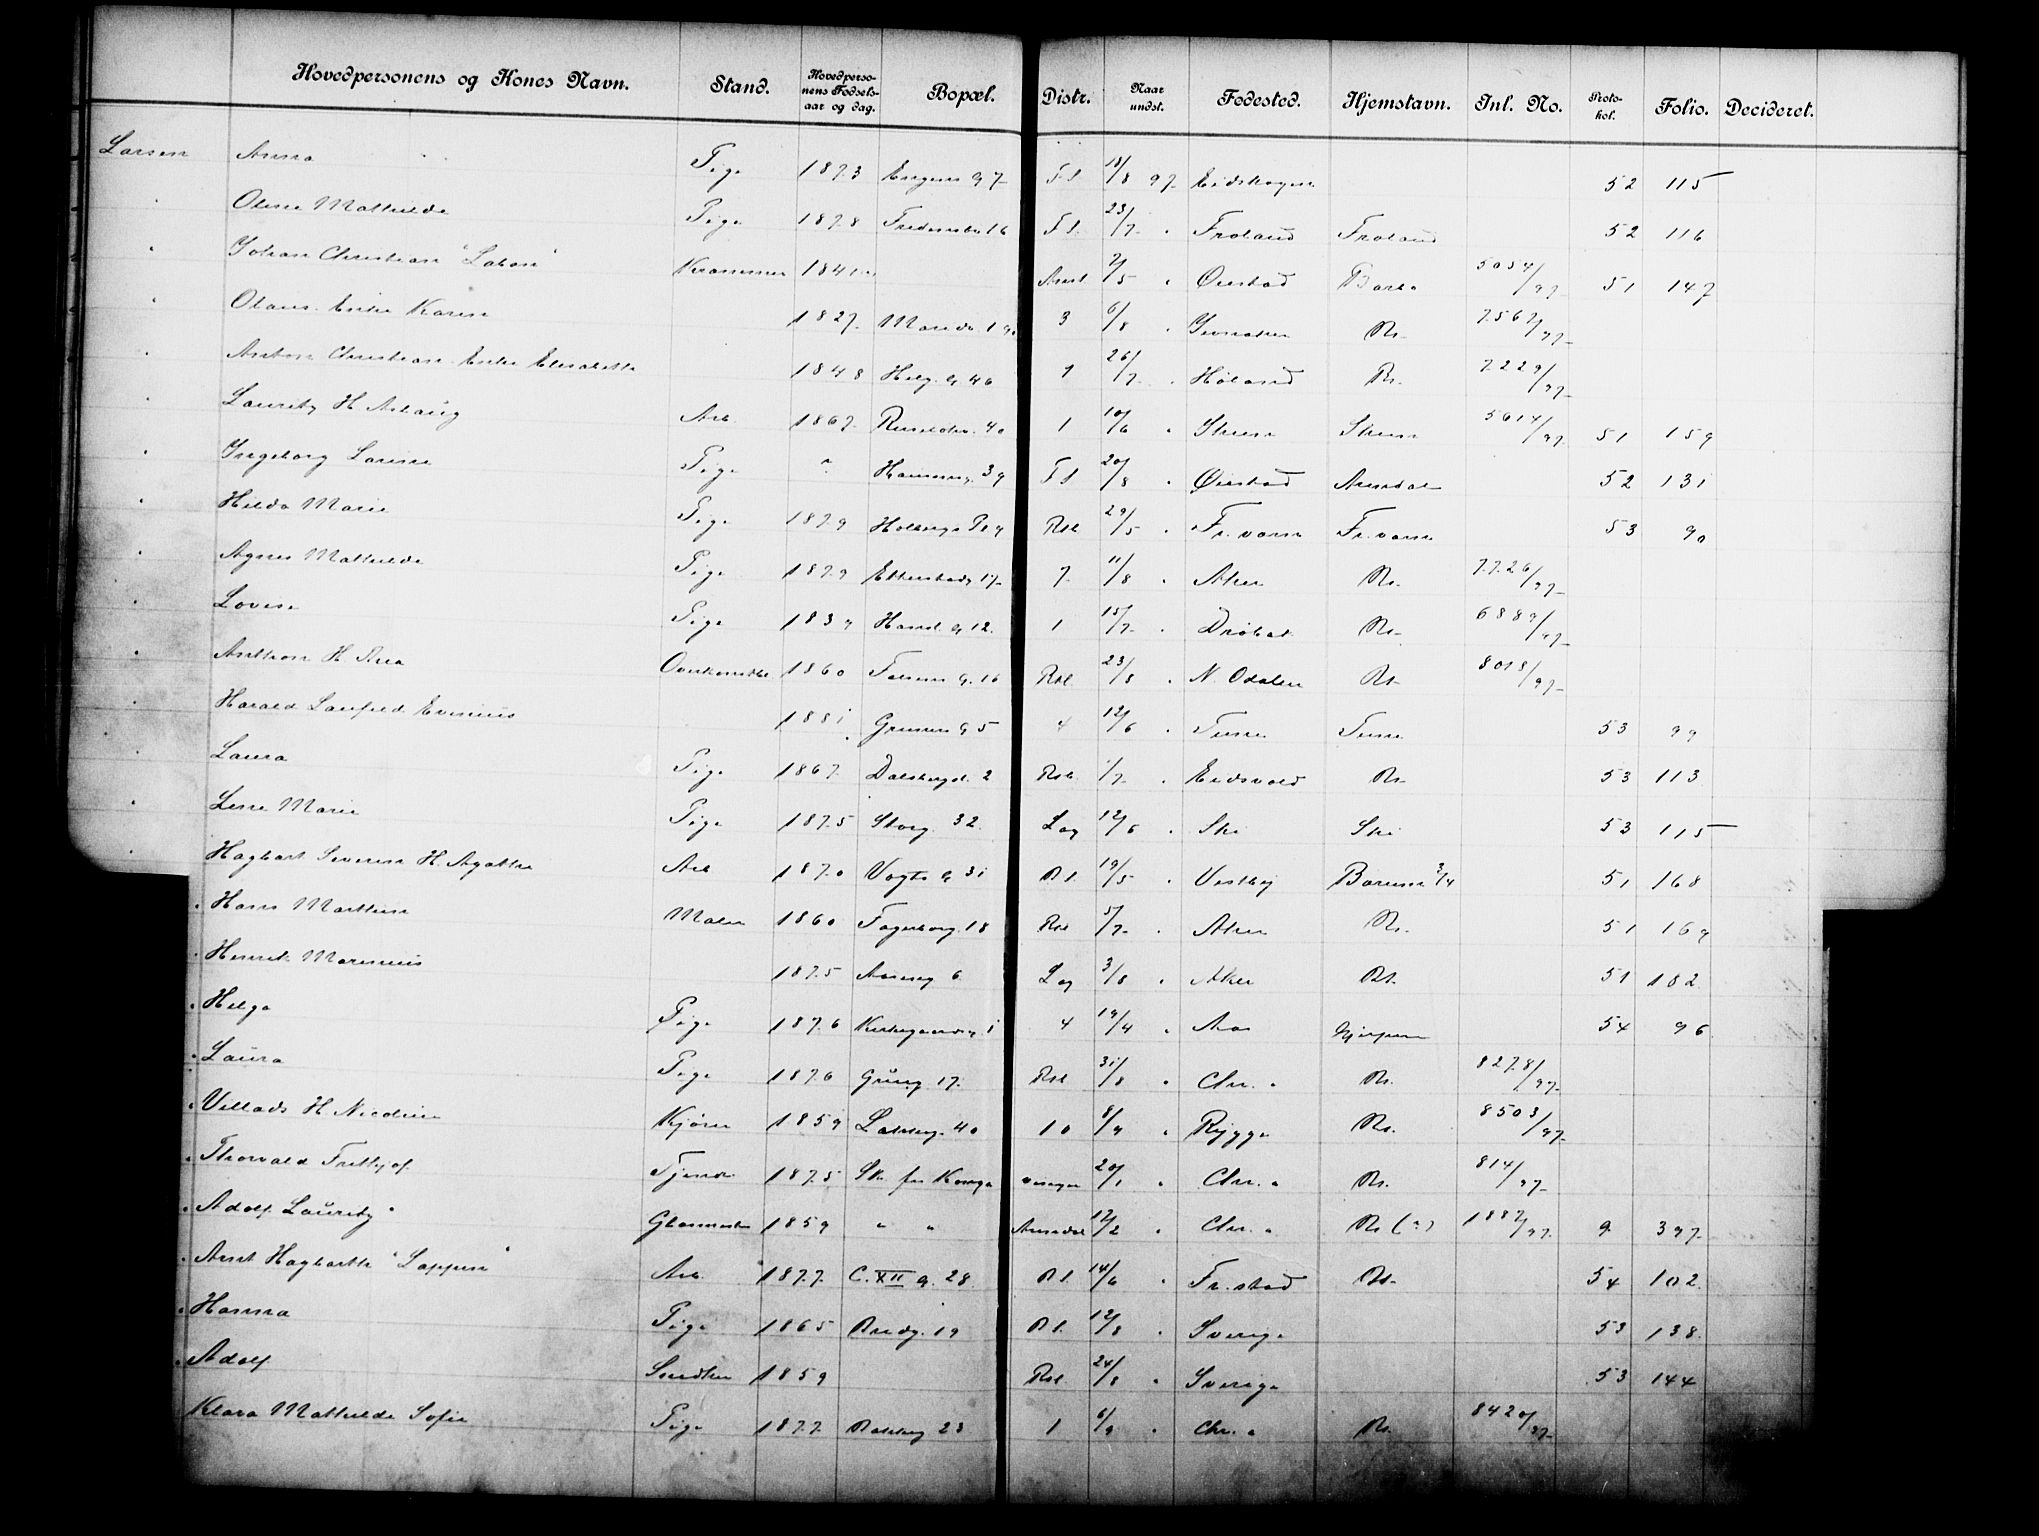 Hovedpersonens og Kones Navn. Stand. Hovedperso- nens Fødsels- aar og dag. Bopæl. Distr. Naar undst. Fødested. Hjemstavn. Inl. No. Proto- kol. Folio. Decideret.
Larsen Anna Pige 1873 Engens g 7 F.l. 18/8 97 Eidskogen 52 115
" Oline Mathilde Pige 1878 16 F.l. 23/7 " Froland Froland 52 116
" Johan Christian "Laban" Kræmmer 1841 Arend 2/5 " Øiestad Barbo 5054/97 51 147
" Olava Enke Karen 1827 3 6/8 " Jevnaker Rs. 7567/97
" Anton Christian Enke Elisabeth 1848 Helg. g 46 1 26/7 " Høland Rs. 7229/97
" Lauritz H. Aslaug Arb. 1867 40 1 10/6 " Skien Skien 5614/97 51 159
" Ingeborg Lovise Pige " Hammersg. 39 F.l. 20/8 " Øiestad Arendal 52 131
" Hilda Marie Pige 1879 Holbergs Pl 4 Rsl 29/5 " Fr.værn Fr.værn 53 90
" Agnes Mathilde Pige 1879 Etterstadg 17 7 11/8 " Aker Rs. 7726/97
" Lovise Pige 1834 Hausm. g 12 1 15/7 " Drøbak Rs. 6889/97
" Anthon H. Thea 1860 g. 16 Rsl 23/8 " N. Odalen Rs. 8018/97
" Harald Laufred Evenius 1881 Gruners g 5 4 12/6 " Tune Tune 53 99
" Laura Pige 1867 Dalsbergst. 2 Rsl. 1/7 " Eidsvold Rs 53 113
" Lene Marie Pige 1875 Storg. 32 Lag 12/6 " Ski Ski 53 115
" Hagbart Severin H. Agathe Arb 1870 Vogts g 31 Rl. 19/5 " Vestby Bærum 3/4 51 168
" Hans Martin Maler 1860 Fagerborg. 18 Rsl 5/7 " Aker Rs. 51 169
" Henrik Marinius 1875 Aaseng 6 Lag 3/8 " Aker Rs. 51 182
" Helga Pige 1876 Kirkegaardsg. 1 4 19/4 " Aas Gjerpen 54 96
" Laura Pige 1876 Grüng. 17 Rsl 31/8 " Chr. a Rs. 8278/97
" Villads H. Nicoline Kjører 1859 Lakkeg. 40 10 8/9 " Rygge Rs. 8503/97
" Thorvald Fritjof Tjener 1875 Sk. fra Korsør 20/1 " Chr. a Rs. 814/97
" Adolf Lauritz Glasmester 1859 " " Arendal 12/2 " Chr. a Rs (?) 1887/97 9 397
" Arnt Hagbarth "Lappen" Arb. 1877 C. XII g. 28 Rl. 14/6 " Fr.stad Rs. 54 102
" Hanna Pige 1865 Bredg. 19 Rl. 12/8 " Sverige 53 138
" Adolf Snedker 1859 Rsl. 24/8 " Sverige 53 144
Klara Mathilde Sofie Pige 1877 Bakkeg 23 1 6/9 " Chr. a Rs. 8420/97